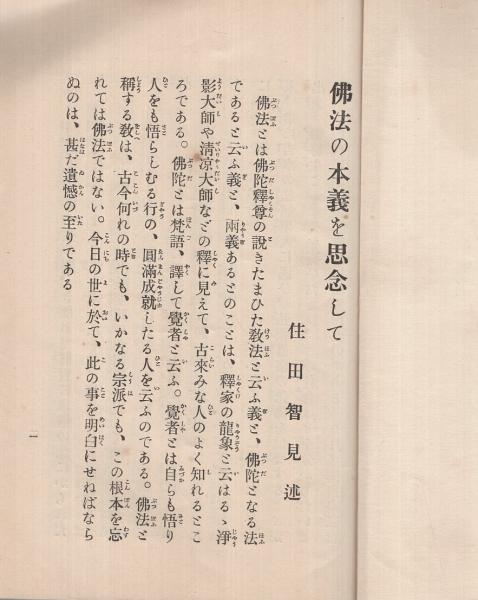 佛法の本義を思念して
住田智見述
佛法とは佛陀釋尊の說きたまひた敎法と云ふ義と、佛陀となる法
であると云ふ義と、兩義あるとのことは、釋家の龍象と云はるゝ淨
影大師や淸凉大師などの釋に見えて、古來みな人のよく知れるとこ
ろである。佛陀とは梵語、譯して覺者と云ふ。覺者とは自らも悟り
人をも悟らしむる行の、圓滿成就したる人を云ふのである。佛法と
稱する敎は、古今何れの時でも、いかなる宗派でも、この根本を忘
れては佛法ではない。今日の世に於て、此の事を明白にせねばなら
ぬのは、甚だ遺憾の至りである
一